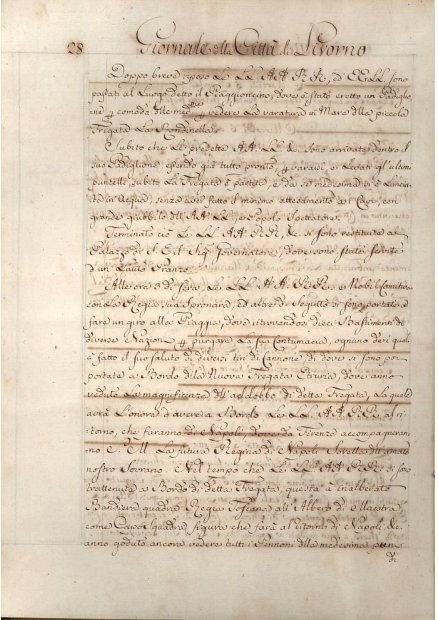 28 Giornale della Città di Livorno
Doppo breve riposo Le LL. AA. RR. ed EE. LL. sono
passati al Luogo detto il Piaggioncino, dove è stato eretto un Padiglio
ne p comodo delle med.me p vedere La varatura in Mare della piccola
Fregata La Rondinella.
Subito che Le predette AA. LL. RR. sono arrivate dentro il
suo Padiglione, essendo già tutto pronto p vararsi, e Levati gl'ultimi
puntelli, subito La Fregata è partita, e da se medesima si è Lancia
ta in Acqua, senza aver fatto il minimo attestamento ai Capi, con
grande giubbilo dell' AA. LL. e Popolo Spettatore.
Terminato ciò Le LL. AA. RR. si sono restituite al
Palazzo di S. E. il Sig. Governatore, dove sono state servite
d'un Lauto Pranzo.
All'ore 20 di sera Le LL. AA. RR. e Nobil Comitiva
con La Regia sua Speronara, ed altre di Seguito si sono portate a
fare un giro alla Piaggia, dove ritrovandosi dieci Bastimenti di
diverse Nazioni p purgare La sua Contumacia, ognuno dei quali
à fatto il suo saluto di diversi tiri di Cannone, di dove si sono poi
portate a Bordo della Nuova Fregata Etruria, dove anno
veduto La magnificenza dell' addobbo di detta Fregata, La quale
averà L'onore d'avere a Bordo Le LL. AA. RR. al ri=
torno, che faranno di Napoli, dove da Firenze accompagneran
no S. M. La futura Regina di Napoli Sorella dell' amato
nostro Sovrano. Nel tempo che Le LL. AA. RR. si sono
trattenute a Bordo di detta Fregata, questa à inalberato
Bandiera quadra Regia Toscana all' Albero di Maestra
come Capo Squadra, figura che farà al ritorno di Napoli, ed
anno goduto ancora vedere tutti i Pennoni della medesima pien
di